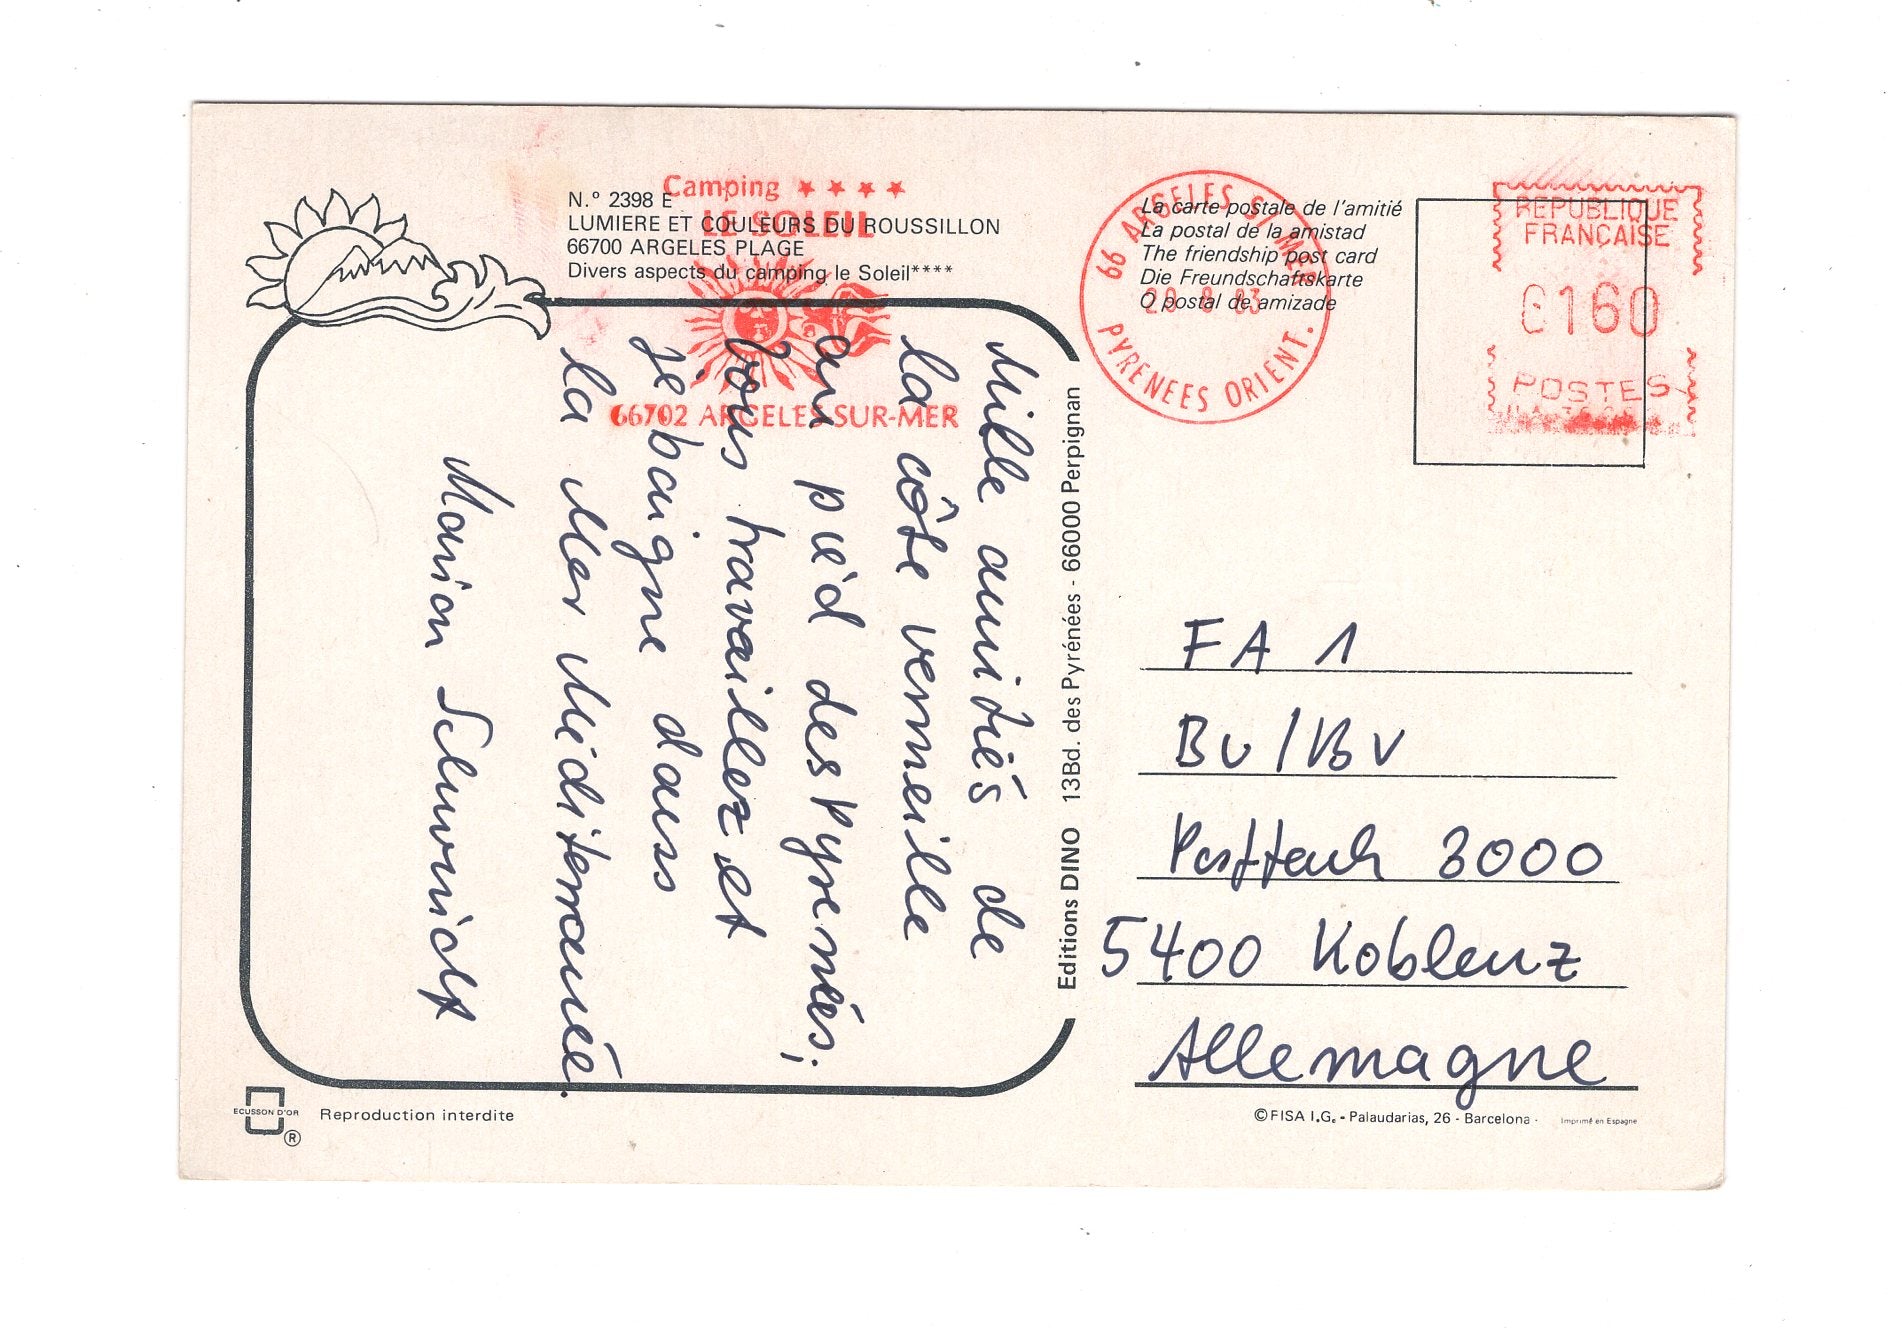 Camping ★★★★
LE SOLEIL
66702 ARGELES-SUR-MER
N.º 2398 E
LUMIERE ET COULEURS DU ROUSSILLON
66700 ARGELES PLAGE
Divers aspects du camping le Soleil****
Mille amitiés de
la côte vermeille
au pied des Pyrenées.
Vous travaillez et
je baigne dans
la Mer Méditerranée.
Marion
Editions DINO 13Bd. des Pyrénées - 66000 Perpignan
66 ARGELES S/ MER
20 -8 83
PYRENEES ORIENT.
La carte postale de l'amitié
La postal de la amistad
The friendship post card
Die Freundschaftskarte
O postal de amizade
REPUBLIQUE
FRANÇAISE
0160
POSTES
FA 1
Postfach 3000
5400 Koblenz
Allemagne
ECUSSON D'OR
®
Reproduction interdite
©FISA I.G. - Palaudarias, 26 - Barcelona -
Imprimé en Espagne